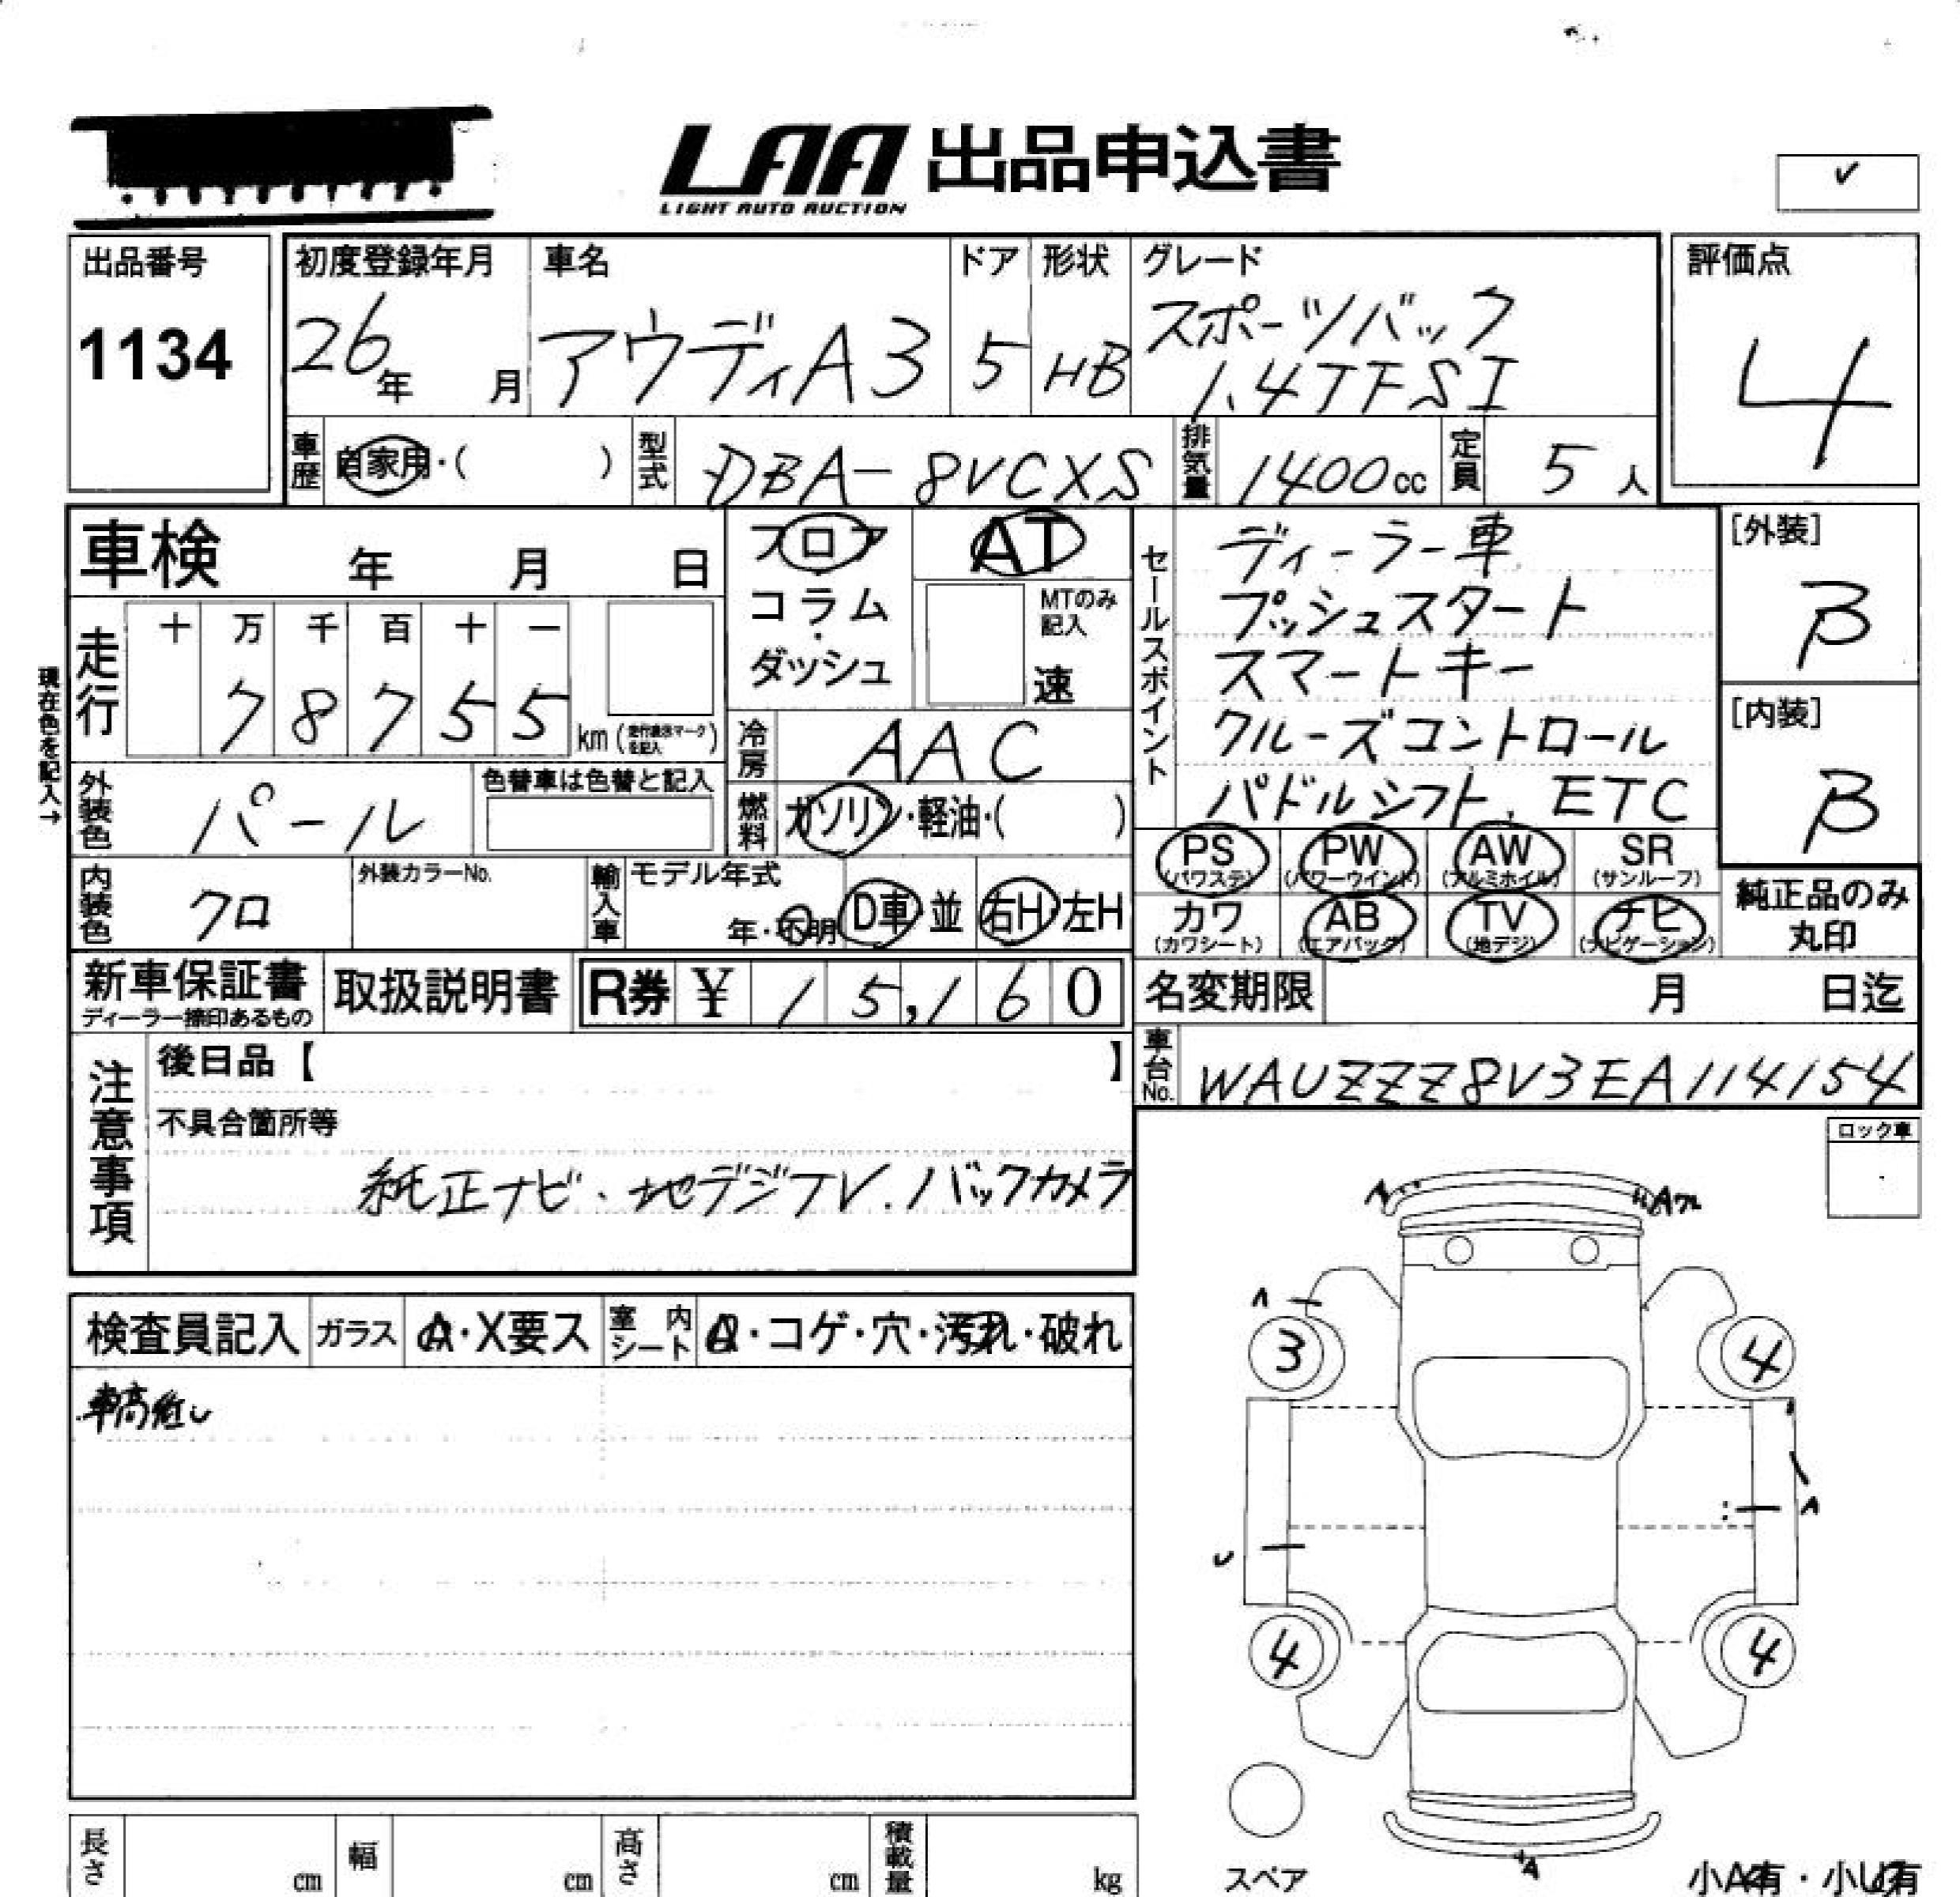 LAA 出品申込書
LIGHT AUTO AUCTION
✓
出品番号
1134
初度登録年月
26年 月
車名
アウディA3
ドア
5
形状
HB
グレード
スポーツバック
1.4TFSI
評価点
4
車歴 自家用・( )
型式 DBA-8VCXS
排気量 1400cc
定員 5人
車検 年 月 日
走行
十 万 千 百 十 一
7 8 7 5 5 km(走行表示マークを記入)
現在色を記入→
フロア
コラム
・
ダッシュ
AT
MTのみ記入
速
冷房 AAC
燃料 ガソリン・軽油・( )
外装色 パール
色替車は色替と記入
内装色 クロ
外装カラーNo.
輸入車 モデル年式
年・不明
D車・並
右H・左H
セールスポイント
ディーラー車
プッシュスタート
スマートキー
クルーズコントロール
パドルシフト、ETC
[外装]
B
[内装]
B
PS (パワステ)
PW (パワーウインド)
AW (アルミホイル)
SR (サンルーフ)
カワ (カワシート)
AB (エアバッグ)
TV (地デジ)
ナビ (ナビゲーション)
純正品のみ
丸印
新車保証書
ディーラー捺印あるもの
取扱説明書
R券 ¥ 15,160
名変期限 月 日迄
車台No. WAUZZZ8V3EA114154
注意事項
後日品【 】
不具合箇所等
純正ナビ・地デジTV.バックカメラ
ロック車
検査員記入
ガラス A・X要ス
室内シート A・コゲ・穴・汚れ・破れ
A
3
4
A
A
4
4
A
スペア
小A有・小U有
長さ cm
幅 cm
高さ cm
積載量 kg